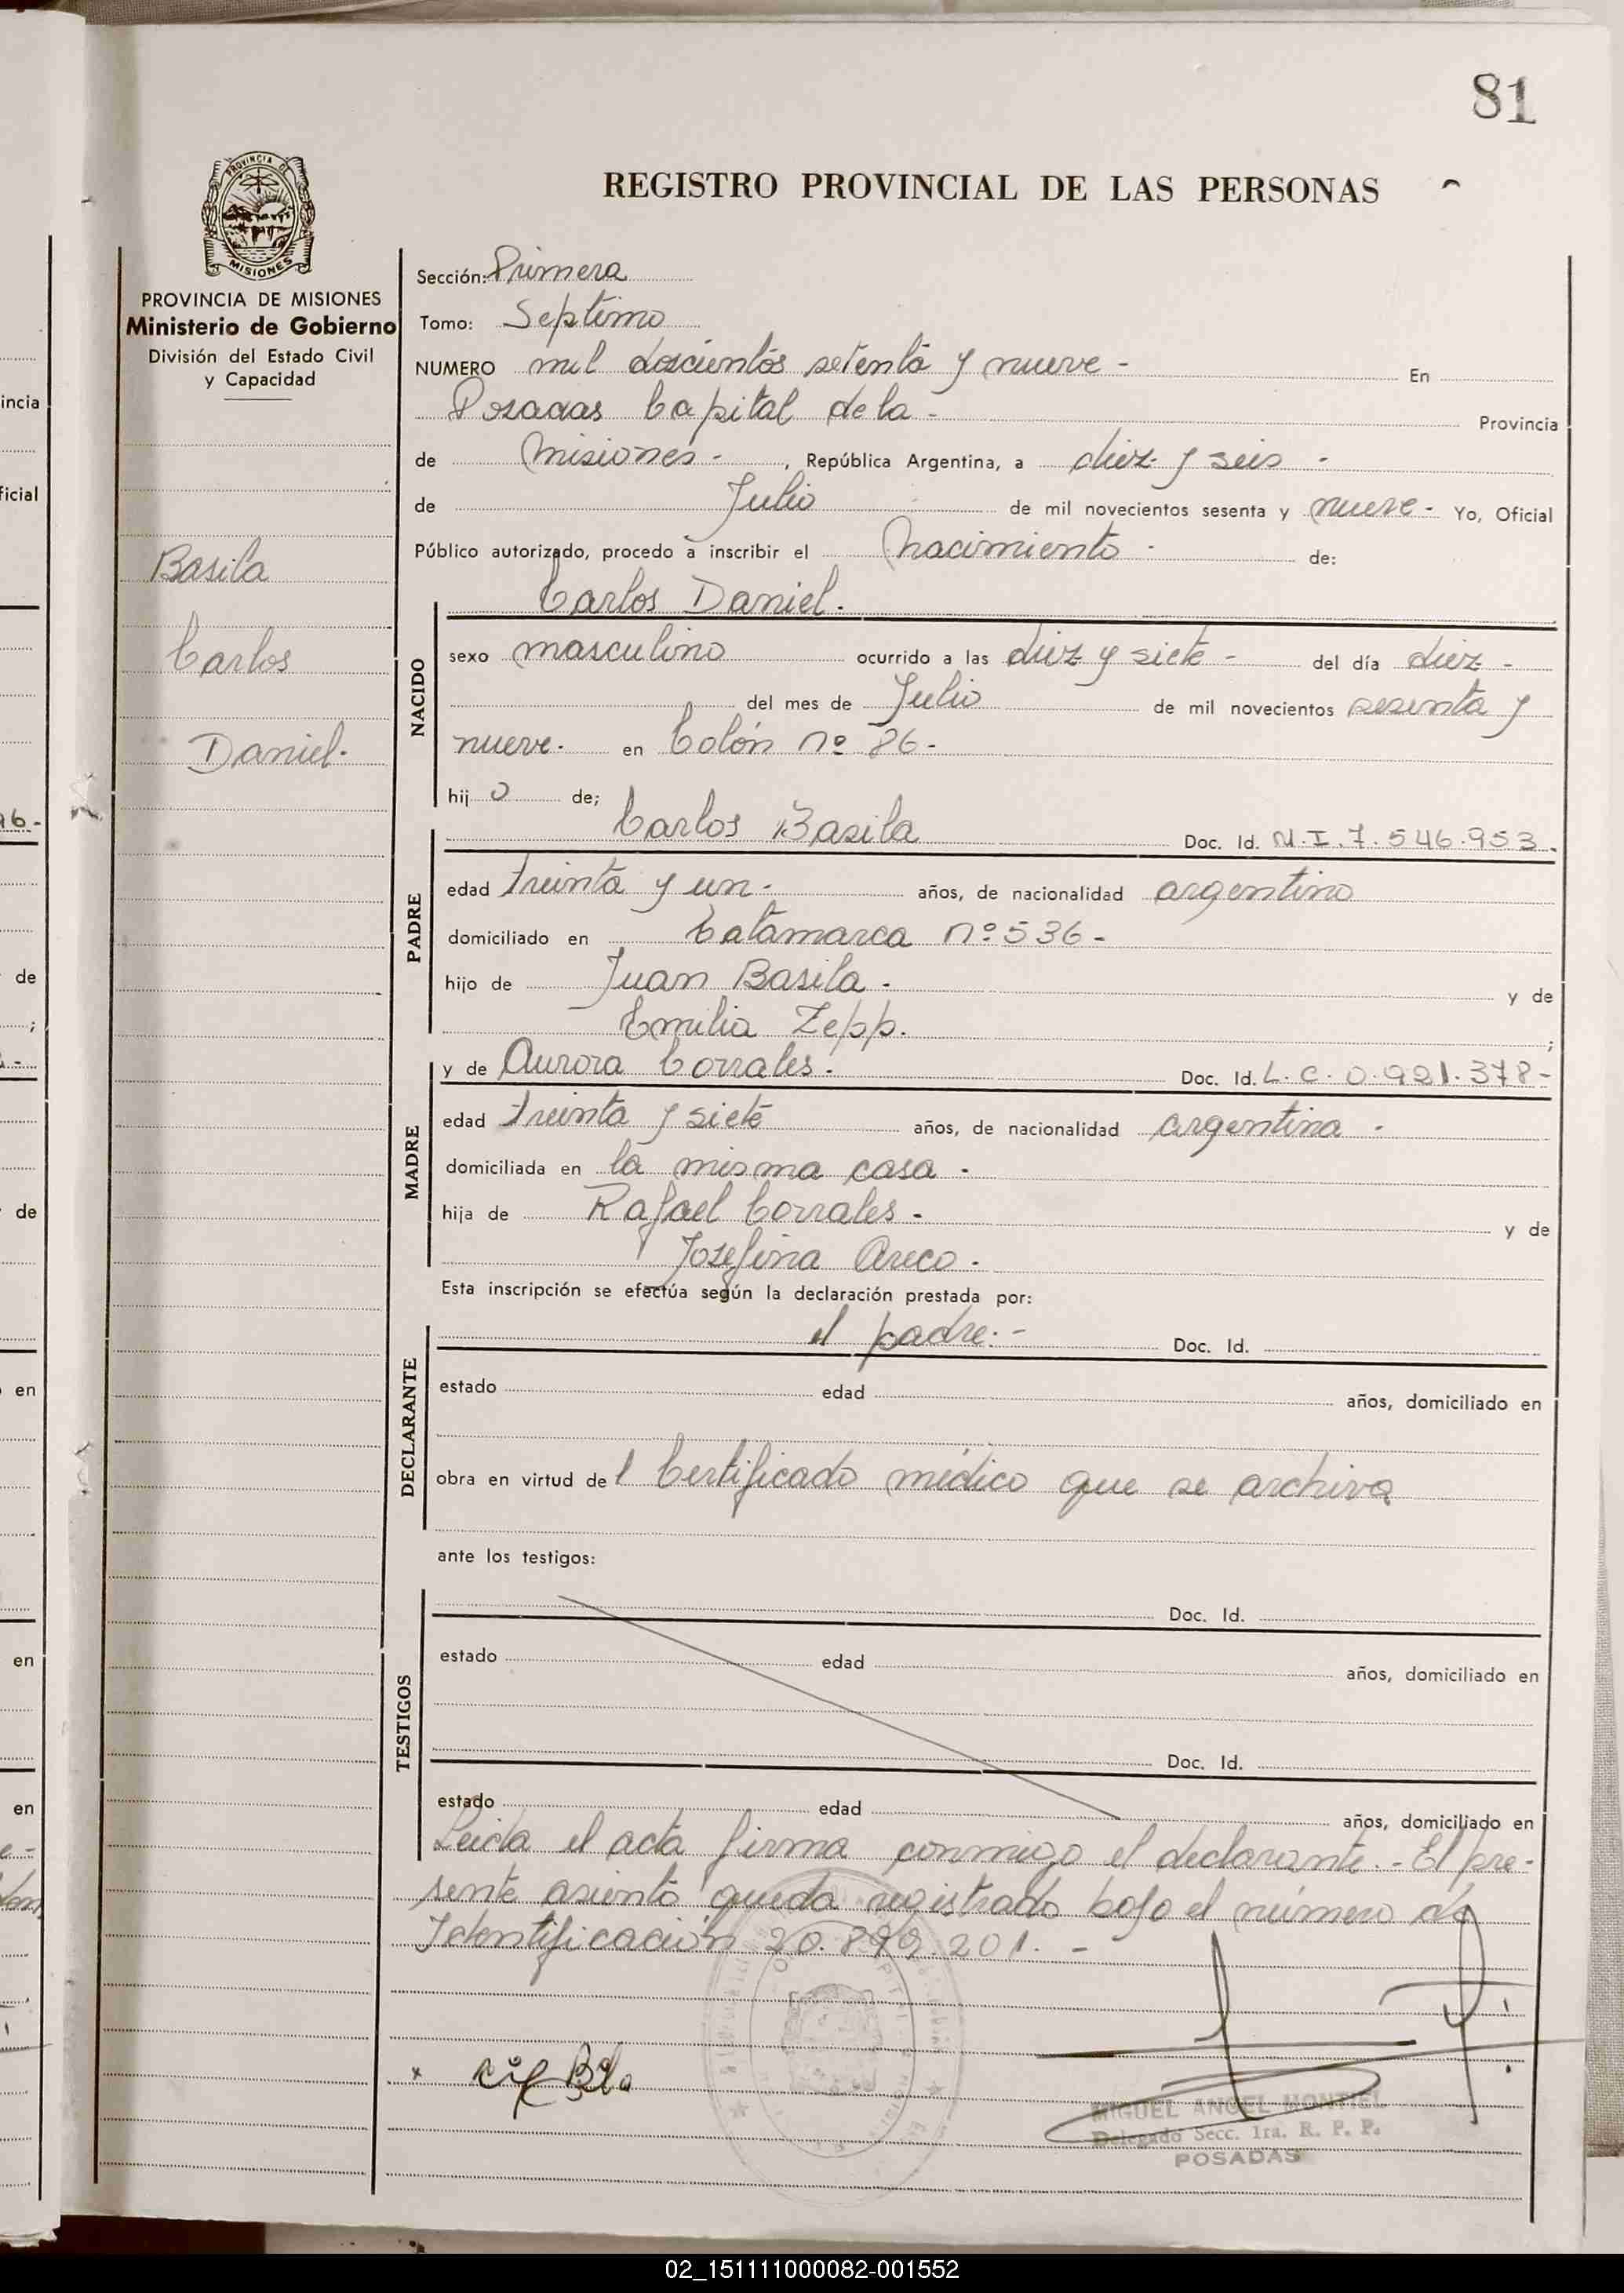 81
REGISTRO PROVINCIAL DE LAS PERSONAS
PROVINCIA DE
MISIONES
PROVINCIA DE MISIONES
Ministerio de Gobierno
División del Estado Civil
y Capacidad
Basila
Carlos
Daniel.
Sección: Primera
Tomo: Septimo
NUMERO mil doscientos setenta y nueve - En
Posadas Capital de la - Provincia
de Misiones - , República Argentina, a diez y seis -
de Julio de mil novecientos sesenta y nueve - Yo, Oficial
Público autorizado, procedo a inscribir el nacimiento - de:
Carlos Daniel.
NACIDO
sexo masculino ocurrido a las diez y siete - del día diez -
del mes de Julio de mil novecientos sesenta y
nueve. en Colón nº 86-
hij o de;
Carlos Basila Doc. Id. M.I. 7.546.953.
PADRE
edad treinta y un - años, de nacionalidad argentino
domiciliado en Catamarca nº 536-
hijo de Juan Basila. y de
Emilia Zepp. ;
y de Aurora Corrales. Doc. Id. L.C. 0.921.378-
MADRE
edad treinta y siete años, de nacionalidad argentina.
domiciliada en la misma casa.
hija de Rafael Corrales. y de
Josefina Areco.
Esta inscripción se efectúa según la declaración prestada por:
el padre.- Doc. Id.
DECLARANTE
estado edad años, domiciliado en
obra en virtud del Certificado médico que se archiva
ante los testigos:
TESTIGOS
Doc. Id.
estado edad años, domiciliado en
Doc. Id.
estado edad años, domiciliado en
Leida el acta firma conmigo el declarante.- El pre-
sente asiento queda registrado bajo el número de
Identificación 20.899.201. -
MIGUEL ANGEL MONTIEL
Delegado Secc. 1ra. R. P. P.
POSADAS
02_151111000082-001552